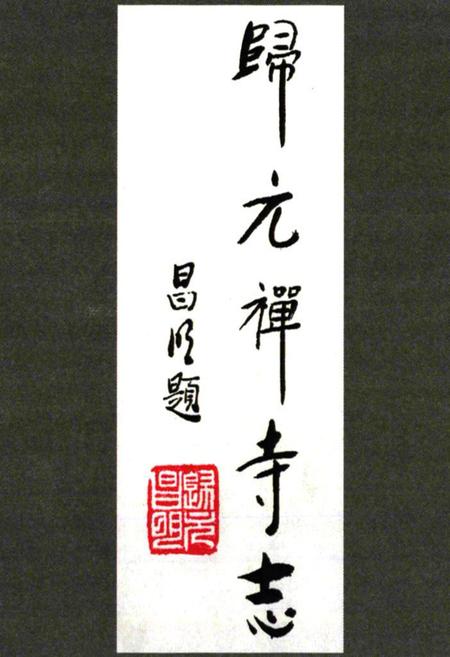 歸元禪寺志
昌明題
歸元昌明